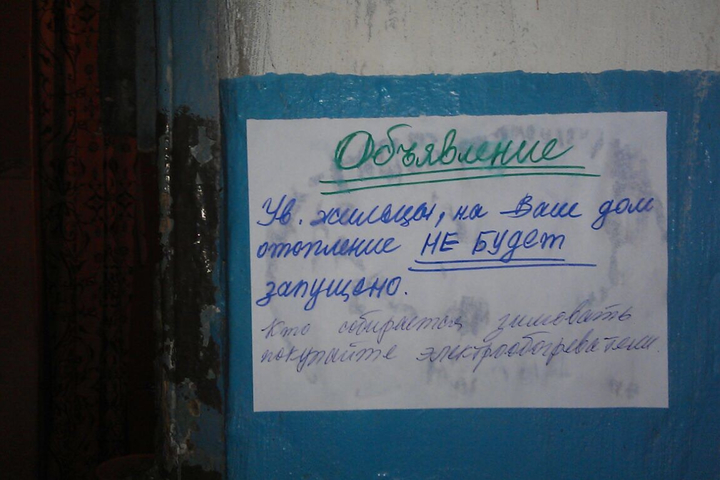 Объявление
Ув. жильцы, на Ваш дом
отопление НЕ БУДЕТ
запущено.
Кто собирается зимовать
покупайте электрообогреватели.